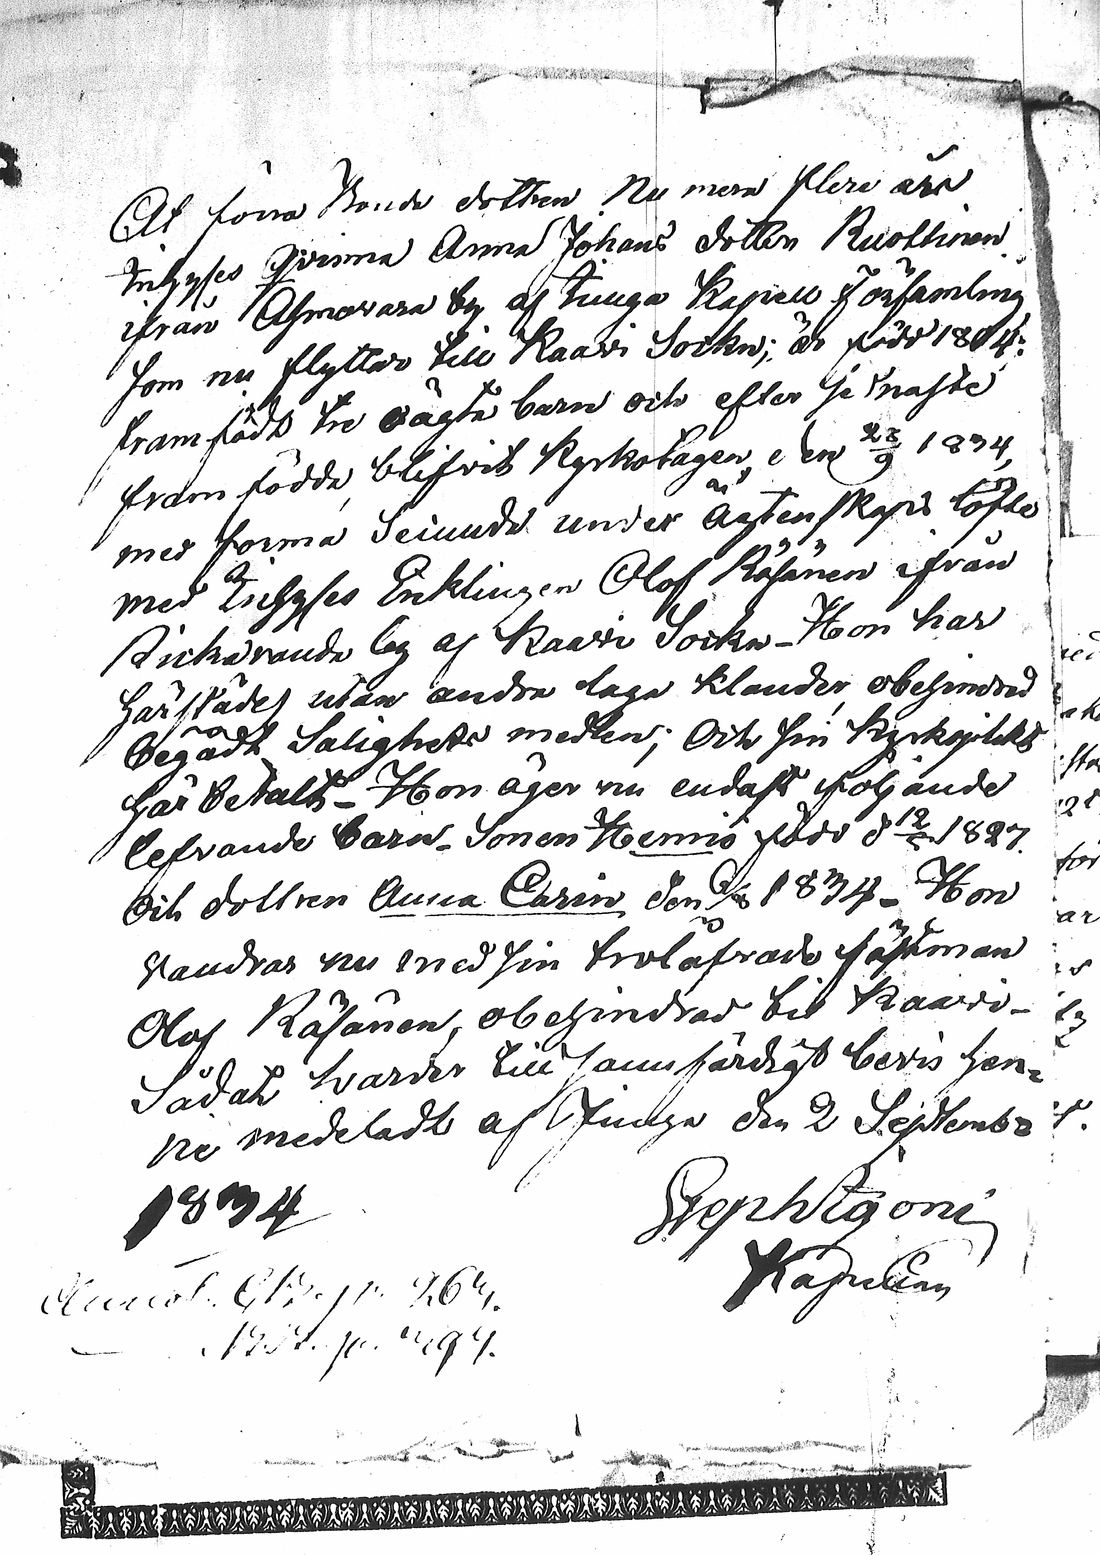 At förra Bonde dottren Nu mera flere års
Inhyses Qvinna Anna Johans dotter Ruottinen
ifrån Ahmovara by af Juuga Kapell Församling
som nu flyttar till Kaavi Sockn; är född 1804:
framfödt tre oägta barn och efter se'naste
framfödda, blifvit Kyrkotagen, den 28/9 1834,
med förma under Ägtenskaps löfte
med Inhyses Enklingen Olof Räsänen ifrån
Rickaranda by af Kaavi Sockn - Hon har
härstädes utan andra laga klander, obehindrad
begådt Salighets medlen; Och sin Kyrkoplikt
här betalt - Hon äger nu endast följande
lefvande barn - Sonen Hennis född d 12/5 1827.
Och dottren Anna Carin den /8 1834 - Hon
vandrar nu med sin trolåfvade fästman
Olof Räsänen, obehindrad till Kaavi -
Sådat varder till sannfärdigt bevis hen=
ne medeladt af Juuga den 2 Septembr
1834
Steph Ligoni
Kapellan
Annot. p. 264.
p. 494.